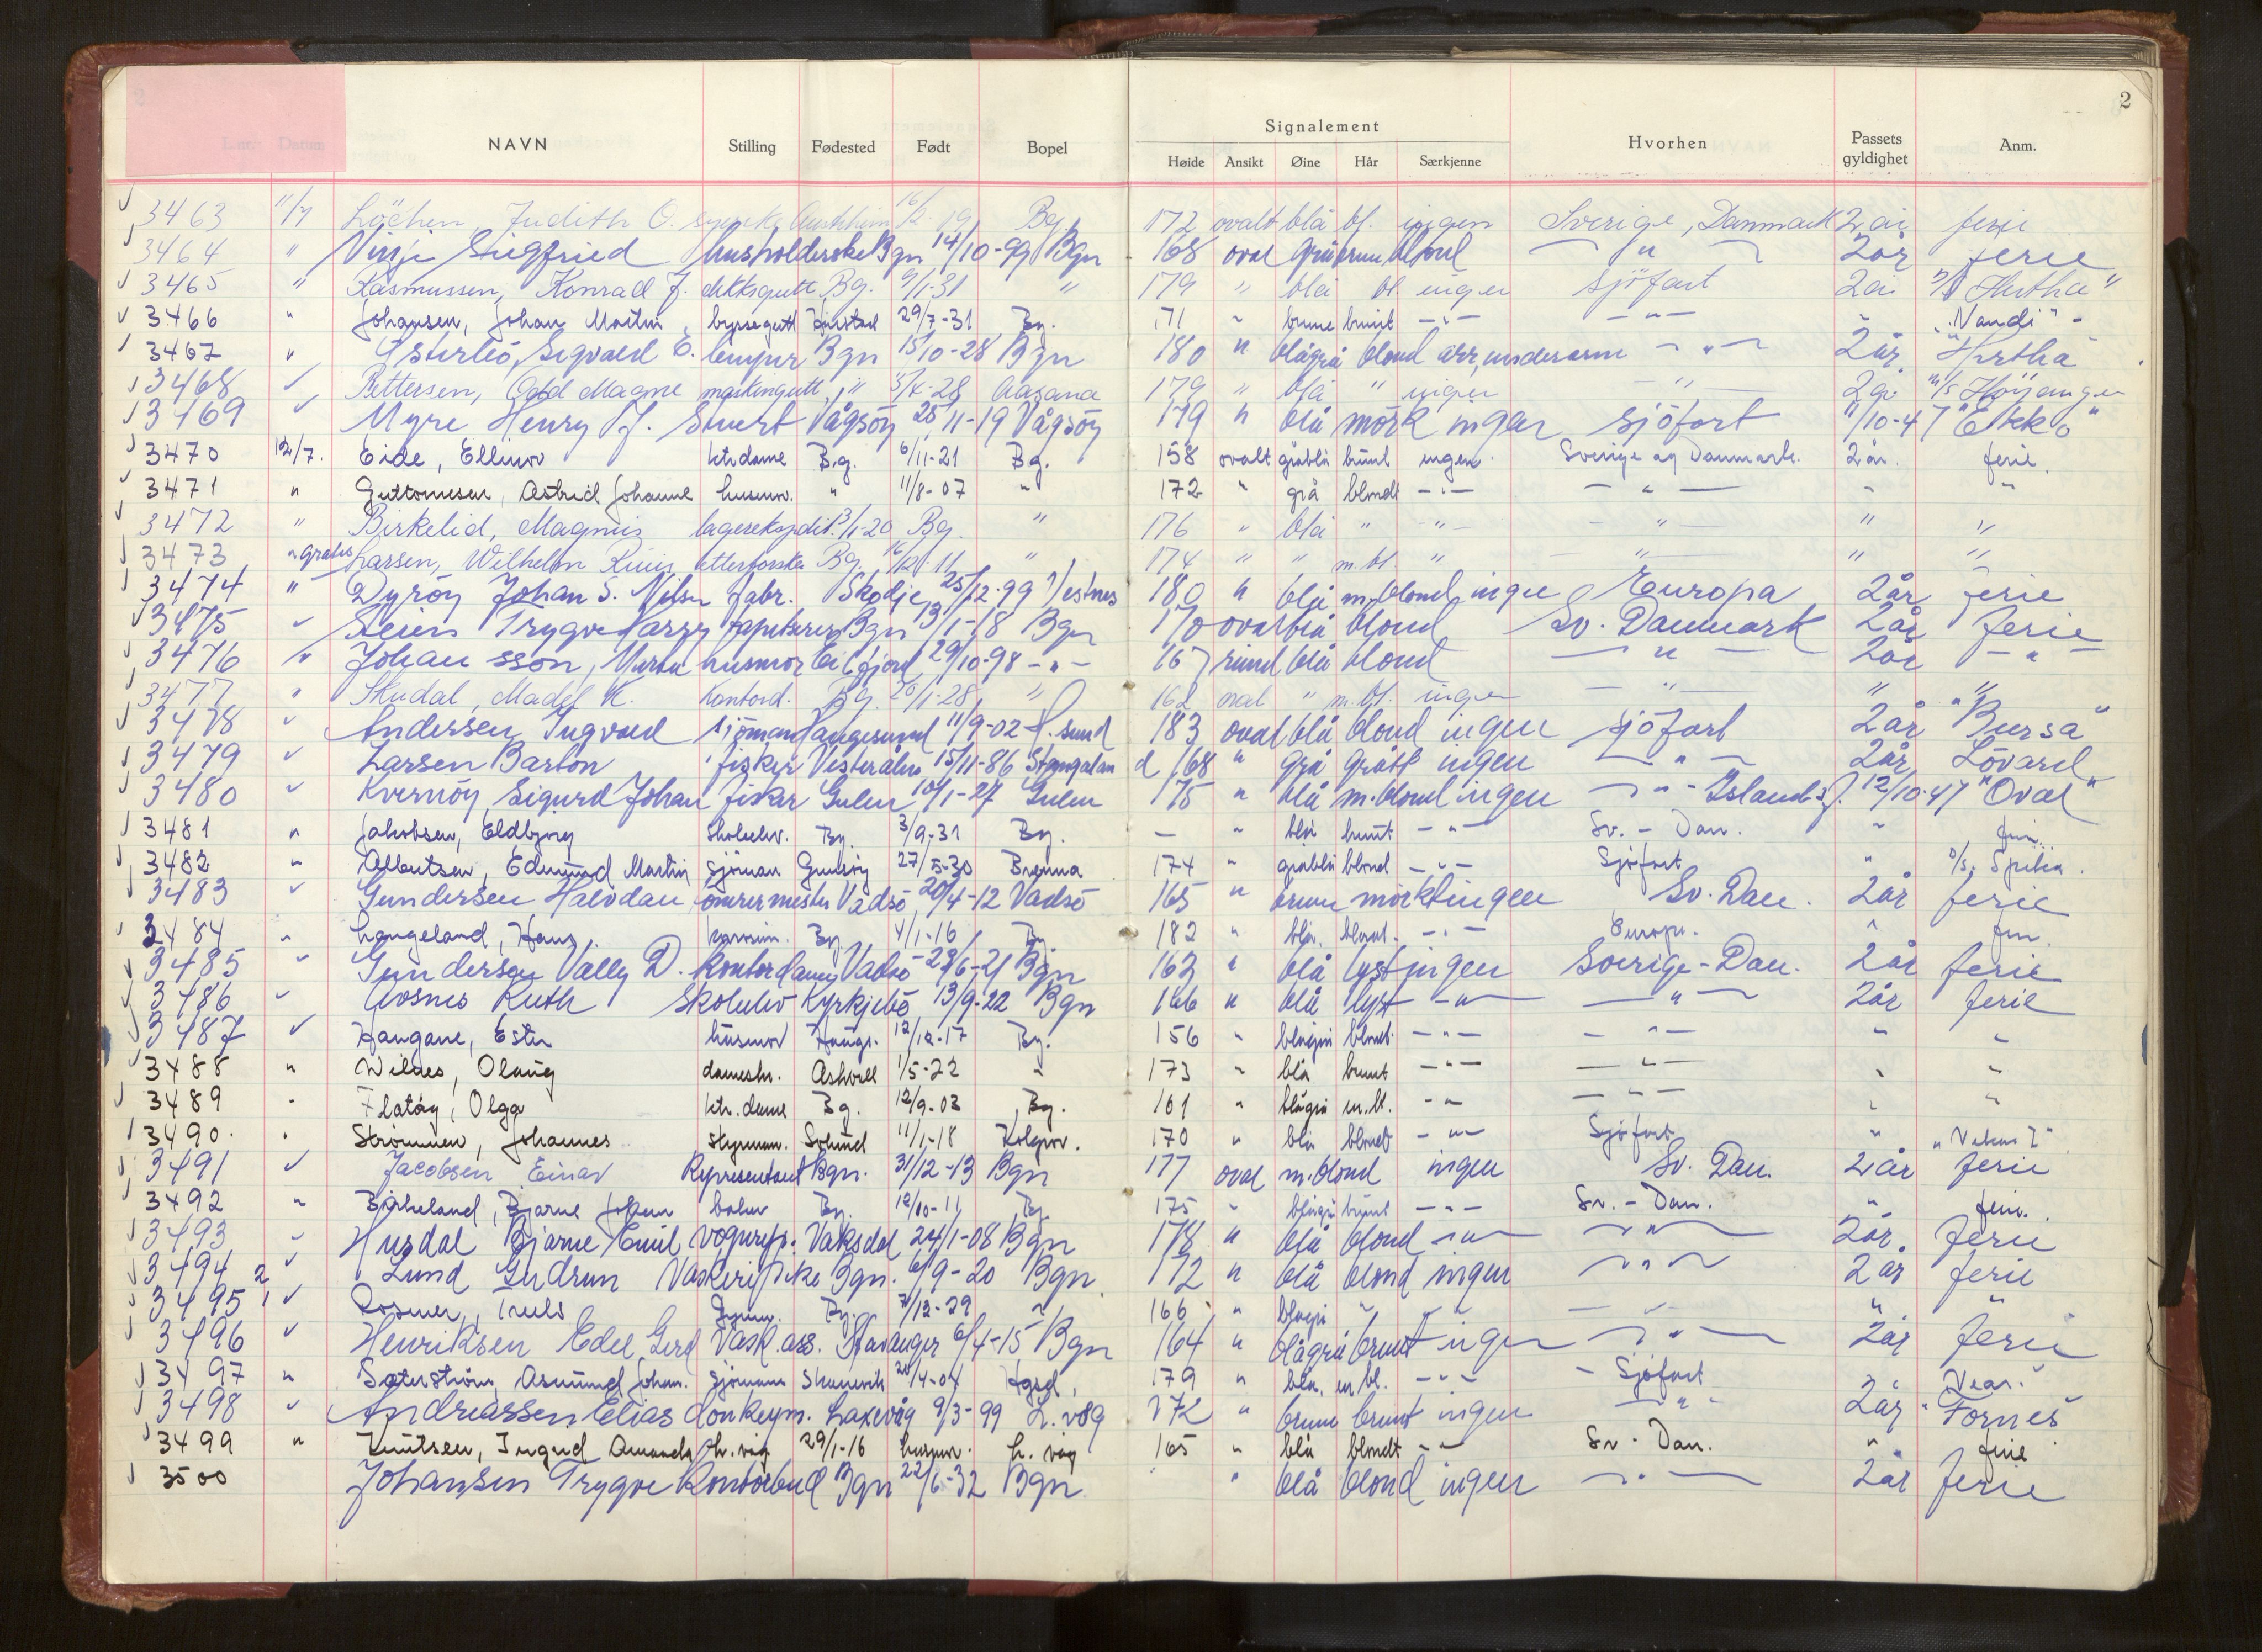 2
Signalement
Løbe Datum NAVN Stilling Fødested Født Bopel Høide Ansikt Øine Hår Særkjenne Hvorhen Passets gyldighet Anm.
3463 11/7 Löchen, Judith O. 19 Bg. 172 ovalt blå bl. ingen Sverige, Danmark 2 år ferie
3464 " Vinje Siegfried husholderske Bgn 14/10-99 Bgn 168 oval gråbrun blond — " — 2 år ferie
3465 " Rasmussen, Konrad J. dekksgutt Bg. 9/1-31 " 179 " blå bl. ingen sjöfart 2 år D/S "Hertha"
3466 " Johansen, Johan Martin byssegutt 29/7-31 Bg. 171 " brune brunt — " — — " — " "Vandi"
3467 " Österbö, Sigvald E. lemper Bgn 15/10-28 Bgn 180 " blågrå blond arr, underarm — " — 2 år "Hertha"
3468 " Pettersen, Odd Magne maskingutt " 28 Aasane 179 " blå " ingen — " — 2 år M/S Höyanger
3469 " Myre Henry J. Stuert Vågsöy 25/11-19 Vågsöy 179 " blå mörk ingen sjöfart 11/10-47 "Ekko"
3470 12/7. Eide, Ellinor ktr.dame Bg. 6/11-21 Bg. 158 ovalt gråblå brunt ingen. Sverige og Danmark. 2 år. ferie.
3471 " Guttormsen, Astrid Johanne husmor. " 11/8-07 " 172 " grå blondt — " — — " — " "
3472 " Birkelid, Magnus lagerekspedit. 3/1-20 Bg. " 176 " blå " — " — — " — " "
3473 " gratis Larsen, Wilhelm etterforsker Bg. 16/12-11 " 174 " " m.bl. " — " — " "
3474 " Dyröy Johan S. Nilsen fabr. Skodje 25/12-99 Vestnes 180 " blå m.blond ingen Europa 2 år ferie
3475 " Trygve Harry tapetserer Bgn 13/1-18 Bgn 170 oval blå blond Sv. Danmark 2 år ferie
3476 " Johansson, husmor Eidfjord 29/10-98 — " — 167 rund blå blond — " — 2 år — "
3477 " Skudal, Madel K. Kontord. Bg. 26/1-28 " 162 oval " m.bl. ingen — " — " "
3478 " Andersen Ingvald sjöman Haugesund 11/9-02 H.sund 183 oval blå blond ingen sjöfart 2 år "Bursa"
3479 " Larsen Barton fisker Vesterålen 15/11-86 168 " grå grått ingen — " — 2 år Lövard
3480 " Kvernöy Sigurd Johan fisker Gulen 10/1-27 Gulen 175 " blå m.blond ingen — " — Islandsf. 12/10-47 "Oval"
3481 " Jakobsen, Eldbjörg skoleelev. Bg. 3/9-31 Bg. — " blå brunt — " — Sv. - Dan. " ferie.
3482 " Albertsen, Edmund Martin sjöman 27/5-30 Brenna 174 " gråblå blond — " — Sjöfart " D/S. Spilia.
3483 " Gundersen Halvdan murermester Vadsö 20/4-12 Vadsö 165 " brune mörkt ingen Sv. Dan. 2 år ferie
3484 " Langeland, Hans. Bg. 4/1-16 Bg. 182 " blå. blond. — " — Europa. " ferie.
3485 " Gundersen Vally D. Kontordame Vadsö 23/6-21 Bgn 163 " blå lyst ingen Sverige - Dan. 2 år ferie
3486 " Avsnes Ruth skoleelev Kyrkjebö 13/9-22 Bgn 166 " blå lyst — " — — " — 2 år ferie
3487 " Haugane, Ester husmor Haugs. 12/12-17 Bg. 156 " blågrå blond. — " — — " — " "
3488 " Wilnes, Olaug Askvoll 1/5-22 " 173 " blå brunt — " — — " — " "
3489 " Flatöy, Olga ktr.dame Bg. 12/9-03 Bg. 161 " blågrå m.bl. — " — — " — " "
3490. " Strömmen, Johannes styrman. Solund 11/1-18 170 " blå blondt — " — Sjöfart "
3491 " Jacobsen Einar Representant Bgn. 31/12-13 Bgn 177 oval m.blond ingen Sv. Dan. 2 år ferie
3492 " Birkeland, Bjarne Johan Bg. 12/10-11 Bg. 175 " blågrå brunt — " — Sv. - Dan. " ferie.
3493 " Husdal Bjarne Emil Vaksdal 24/1-08 Bgn 178 " blå blond — " — — " — 2 år. ferie
3494 2 " Lund Gudrun Vaskeripike Bgn. 6/9-20 Bgn. 172 " blå blond ingen — " — 2 år ferie
3495 1 " Rosmer, Truls Gymn. Bg. 7/12-29 " 166 " blågrå " " — " — " "
3496 " Henriksen Edel Gerd Vask.ass. Stavanger 6/4-15 Bgn 164 " blågrå brunt ingen — " — 2 år ferie
3497 " Sæterström, Asmund Johan. sjömann Skånevik 20/4-04 Hgsd. 179 " blå. m.bl. — " — - Sjöfart " "Vear."
3498 " Andreassen Elias donkeym. Laxevåg 9/3-99 L.våg 172 " brune brunt ingen — " — 2 år "Fornes"
3499 " Knutsen, Ingrid Amanda L.våg 29/1-16 husmor. L. våg 165 " blå blondt — " — Sv - Dan. " ferie
3500 Johansen Trygve Kontorbud Bgn 22/6-32 Bgn " blå blond ingen — " — 2 år ferie